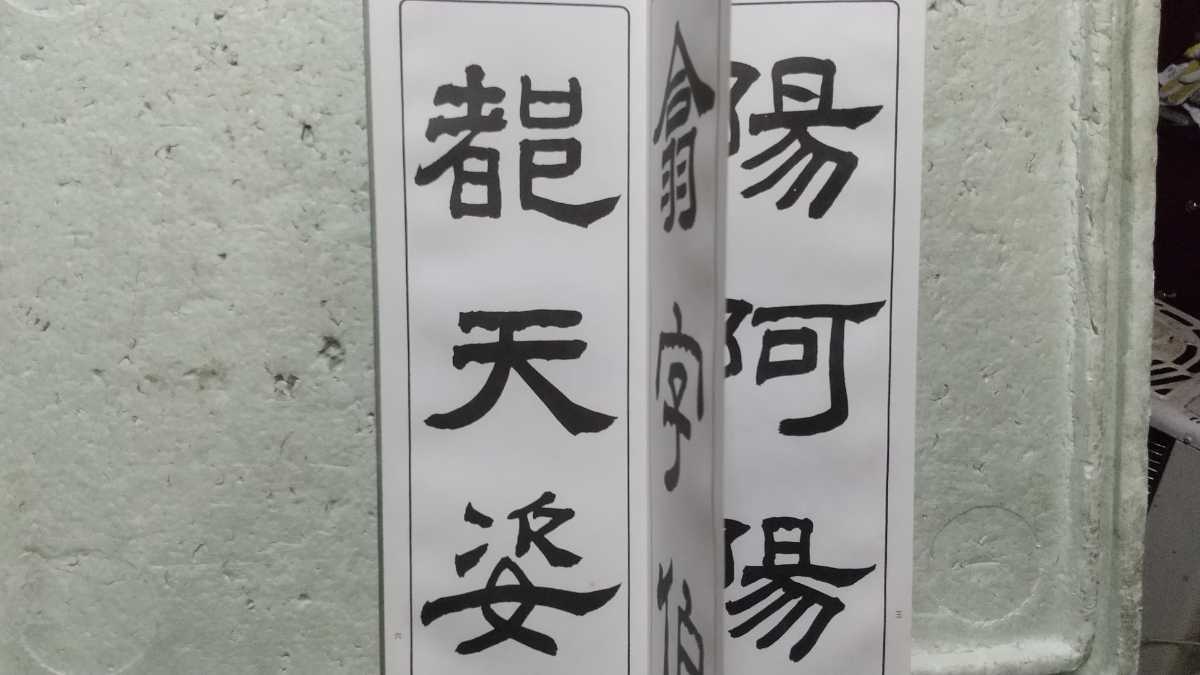 陽阿陽
翕字伯
都天姿
三